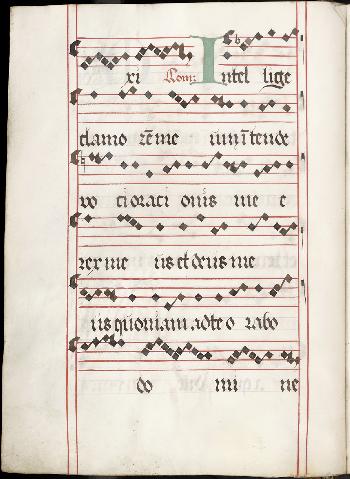 xi Com: Intel lige
clamo rē me in tende
vo ci oraci onis me e
rex me us et deus me
us quoniam ad te o rabo
do mi ne